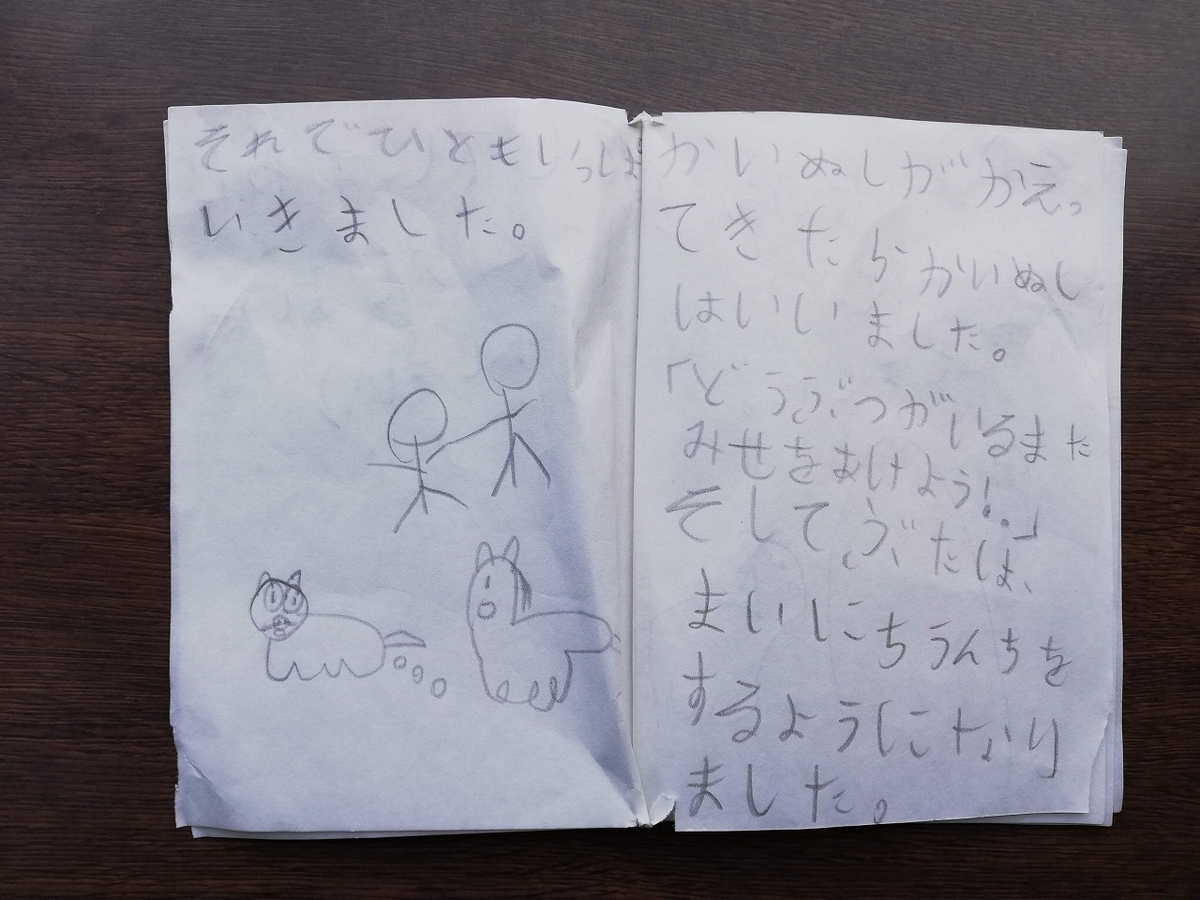 それでひともいっしょに
いきました。
かいぬしがかえっ
てきたらかいぬし
はいいました。
「どうぶつがいるまた
みせをあけよう!。」
そしてぶたは、
まいにちうんちを
するようになり
ました。